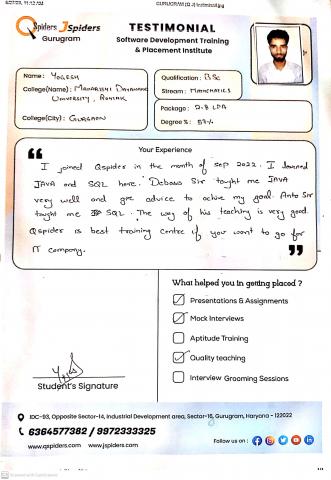 Qspiders Jspiders
Gurugram
TESTIMONIAL
Software Development Training
& Placement Institute
Name: Yogesh
College(Name): Maharshi Dayanand
University, Rohtak
College(City): Gurgaon
Qualification: B.Sc
Stream: Mathematics
Package: 2.8 LPA
Degree %: 57%
Your Experience
I joined Qspider in the month of sep 2022. I learned
JAVA and SQL here. Sir taught me JAVA
very well and advice to my goal. Anto Sir
taught me SQL. The way of his teaching is very good.
Qspider is best training centre if you want to go for
IT company.
What helped you in getting placed ?
Presentations & Assignments
Mock Interviews
Aptitude Training
Quality teaching
Interview Grooming Sessions
Student's Signature
IDC-93, Opposite Sector-14, Industrial Development area, Sector-16, Gurugram, Haryana - 122022
6364577382 / 9972333325
www.qspiders.com www.jspiders.com
Follow us on :